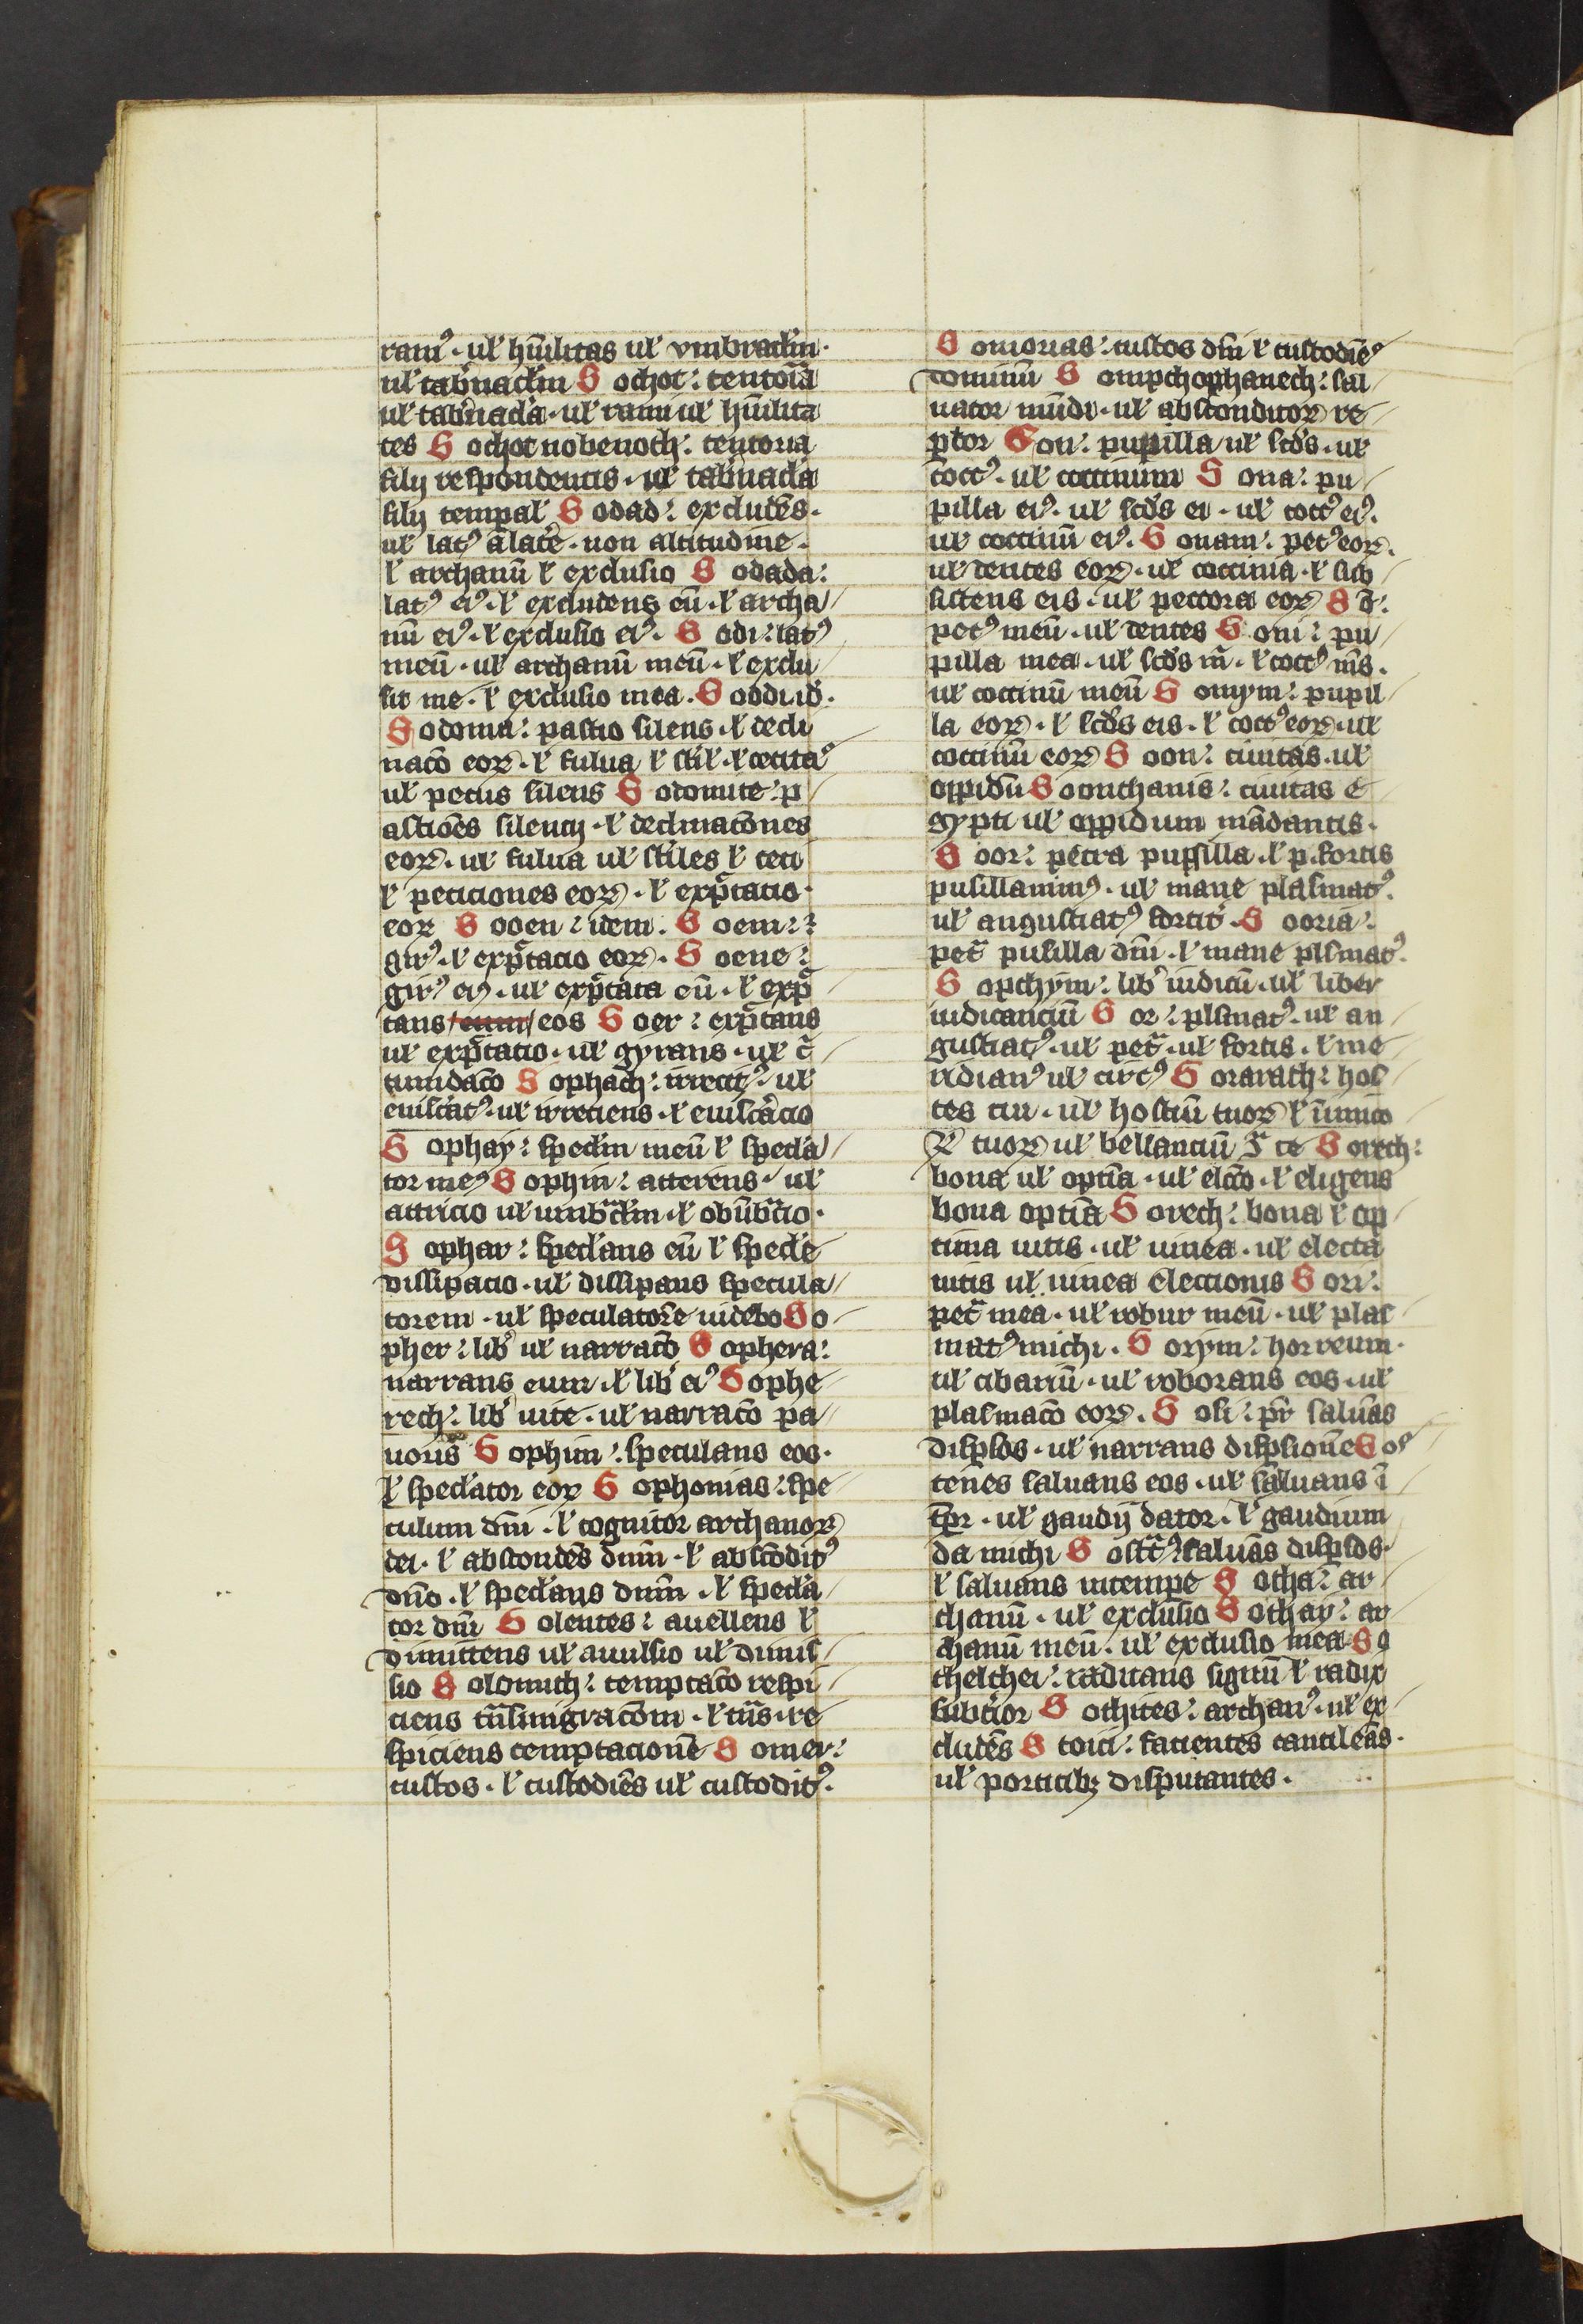 ramꝰ · ul' hūilitas ul' vmbraclm̄ ·
ul' tab'naclm̄ Sochot : tentoīa
ul' tab'nacla · ul' rami ul' hūilita
tes Sochot nobenoth : tentoria
filij respondentis · ul' tab'nacla
filij tempal' Sodad : excludēs ·
ul' latꝰ a latē · non altitudine ·
l' archanū l' exclusio Sodada :
latꝰ eiꝰ · l' excludens eū · l' archa
nū eiꝰ · l' exclusio eiꝰ · Sodi : latꝰ
meū · ul' archanū meū · l' exclu
sit me · l' exclusio mea · Soddi id' ·
Sodoma : pastio silens · l' decli
nacō eoꝝ · l' fulua l' st'il' · l' cecitaꝰ
ul' pecus silens Sodomite : p
astiōes silencij · l' declinatōnes
eoꝝ · ul' fulua ul' st'iles l' ceci
l' peticiones eoꝝ · l' exp̄tatio ·
eoꝝ Sooen : idem · Soem :
girꝰ · l' exp̄tacio eoꝝ · Soene :
girꝰ eiꝰ · ul' exp̄tata eū · l' exp̄
tans eum eos Soer : exp̄tans
ul' exp̄tatio · ul' gyrans · ul' c̄
tundacō Sophach : irrecitꝰ · ul'
euiscatꝰ · ul' irreciens · l' euiscācio
Sophay : speclm̄ meū l' specla
tor meꝰ Sophin : atterens · ul'
attricio ul' umb̄clm̄ · l' obūb̄cio ·
Sophar : speclans eū l' specle
dissipacio · ul' dissipans specula
torem · ul' speculatorē uidebo So
pher : lib' ul' narracō Sophera :
narrans eum · l' lib' eiꝰ Sophe
rech : lib' uite · ul' narracō pa
uoris Sophim : speculans eos ·
l' speclator eoꝝ Sophonias : spe
culum dn̄i · l' cognitor archanoꝝ
dei · l' abscondēs dnm̄ · l' abscōditꝰ
dn̄o · l' speclans dnm̄ · l' specla
tor dn̄i Solentes : auellens l'
dimittens ul' auulsio ul' dimis
sio Solomith : temptacō respi
ciens tn̄smigracōm · l' tn̄s · re
spiciens temptacionē Somer :
custos · l' custodiēs ul' custoditꝰ ·
Somorias : custos dn̄i l' custodiēꝰ
dominū Sompchophanech : sal
uator mūdi · ul' absconditoꝝ re
ptor Son : pupilla ul' scd's · ul'
coccꝰ · ul' coccinum Sona : pu
pilla eiꝰ · ul' scd's ei · ul' coccꝰ eiꝰ ·
ul' coccinū eiꝰ · Sonam : petꝰ eoꝝ ·
ul' dentes eoꝝ · ul' coccinia · l' sub
sistens eis · ul' peccora eoꝝ
petꝰ meū · ul' dentes Soni : pu
pilla mea · ul' scd's m̄ · l' coccꝰ m̄s ·
ul' coccinū meū Sonym : pupil
la eoꝝ · l' scd's eis · l' coccꝰ eoꝝ · ul'
coccinū eoꝝ Soon : ciuitas · ul'
oppidū Soonthanis : ciuitas e
gypti ul' oppidum mādantis ·
Soor : petra pupsilla · l' p · fortis
pusillanimꝰ · ul' mane plasmatꝰ ·
ul' angustiatꝰ fortit' · Sooria :
pet̄ pusilla dn̄i · l' mane plsmatꝰ ·
Sopchym : lib' iudicū · ul' liber
iudicanciū Sor : plsmatꝰ · ul' an
gustiatꝰ · ul' pet̄ · ul' fortis · l' me
ridianꝰ ul' circꝰ Sorarath : hos
tes tui · ul' hostiū tuoꝝ l' īimico
ꝝ tuoꝝ ul' bellanciū 9̄ te Sorech :
bona ul' optīa · ul' elc̄cō · l' eligens
bona optīa Sorech : bona l' op
tima uitis · ul' uinea · ul' electa
uitis ul' uinea electionis Sori :
pet̄ mea · ul' robur meū · ul' plas
matꝰ michi · Sorym : horreum ·
ul' cibariū · ul' roborans eos · ul'
plasmacō eoꝝ · Sosi : pr̄ saluās
displos · ul' narrans displionē Sos
tenes saluans eos · ul' saluans ī
tp̄r · ul' gaudij dator · l' gaudium
da michi Sost̄tꝰ : saluās displos ·
l' saluans intempe Sotha : ar
chanū · ul' exclusio Sothay : ar
chanū meū · ul' exclusio mea So
thelthei : raditans signū l' radix
subtior Sothites : archanꝰ · ul' ex
cludēs Stoici : facientes cantilēas ·
ul' porticibꝫ disputantes ·